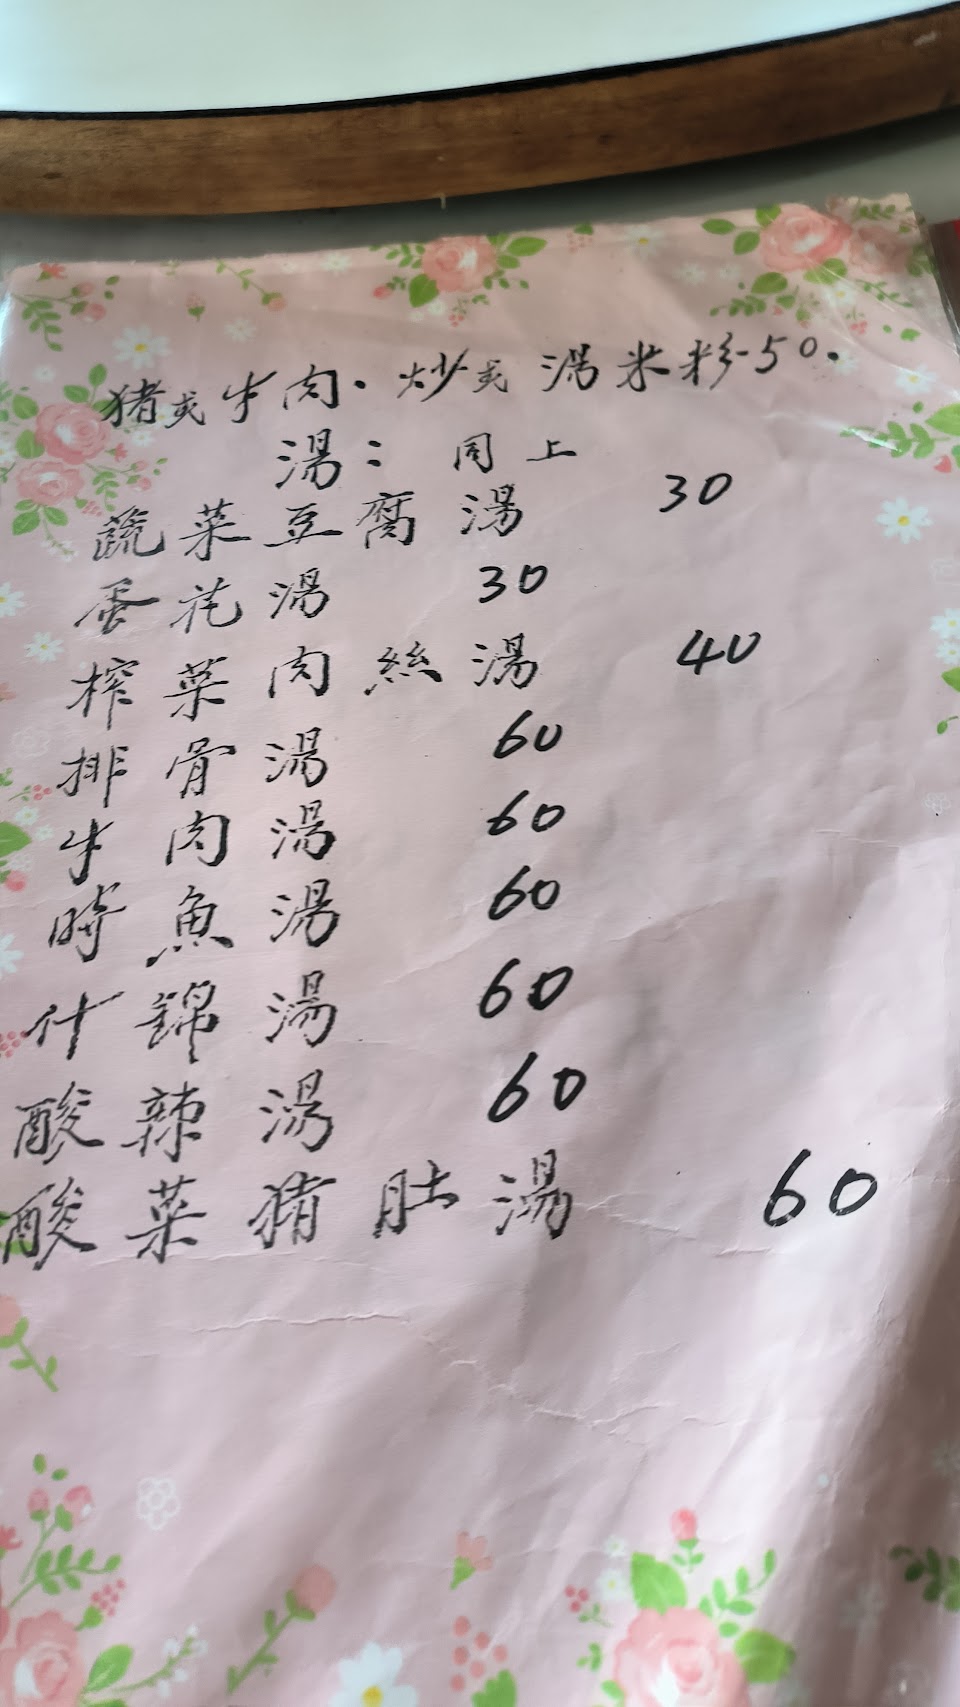 猪或牛肉．炒或湯米粉50．
湯：同上
蔬菜豆腐湯 30
蛋花湯 30
榨菜肉絲湯 40
排骨湯 60
牛肉湯 60
時魚湯 60
什錦湯 60
酸辣湯 60
酸菜猪肚湯 60